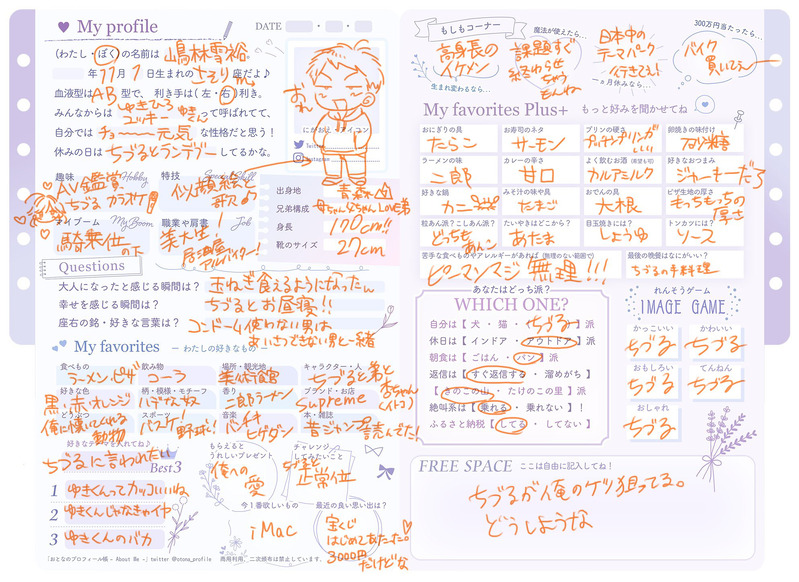 My profile
DATE
(わたし・ぼく)の名前は 嶋林雪裕
年 11月 7日生まれの さそり座だよ♪
血液型は AB型で、 利き手は(左・右)利き。
みんなからは ゆきひろ ユッキー ゆきくん って呼ばれてて、
自分では チョ〜〜〜元気 な性格だと思う!
休みの日は ちづるとランデブー してるかな。
おれ
にがおえ・アイコン
Twitter
Instagram
趣味 Hobby
AV鑑賞
ちづる カラオケ
特技 Special Skill
似顔絵と歌♪
マイブーム My Boom
騎乗位の下
職業や肩書 Job
美大生!
居酒屋アルバイター!
出身地 青森
兄弟構成 母ちゃん父ちゃんLOVE弟
身長 170cm!!
靴のサイズ 27cm
Questions
大人になったと感じる瞬間は? 玉ねぎ食えるようになったん
幸せを感じる瞬間は? ちづるとお昼寝!!
座右の銘・好きな言葉は? コンドーム使わない男は
あいさつできない男と一緒
My favorites ― わたしの好きなもの ―
食べもの ラーメン・ピザ
飲み物 コーラ
場所・観光地 美術館
キャラクター・人 ちづると弟と杏ちゃん(イトコ)
好きな色 黒・赤・オレンジ
柄・模様・モチーフ ハデな奴
香り 二郎ラーメン
ブランド・お店 Supreme
どうぶつ 俺に懐いてくれる動物
スポーツ バスケ! 野球!
音楽 バンチキ ヒゲダン
本・雑誌 昔ジャンプ読んでた!
好きなテーマを入れてね♪
ちづるに言われたい
Best3
1 ゆきくんってカッコいいね
2 ゆきくんじゃなきゃイヤ
3 ゆきくんのバカ
もらえるとうれしいプレゼント
俺への愛
チャレンジしてみたいこと
ちづると正常位
今1番欲しいもの
iMac
最近の良い思い出は?
宝くじはじめてあたった。3000円だけどな
「おとなのプロフィール帳 - About Me -」 twitter @otona_profile 商用利用、二次頒布は禁止しています。
もしもコーナー
高身長のイケメン
生まれ変わるなら…
魔法が使えたら…
課題すぐ終わらせちゃうもんね
日本中のテーマパーク行きてえ!
一ヵ月休みなら…
300万円当たったら…
バイク買いてえ〜
My favorites Plus+ もっと好みを聞かせてね
おにぎりの具 たらこ
お寿司のネタ サーモン
プリンの硬さ プッチンプリンぐらいがいい
卵焼きの味付け 砂糖
ラーメンの味 二郎
カレーの辛さ 甘口
よく飲むお酒 (希望も可) カルアミルク
好きなおつまみ ジャーキーだろ
好きな鍋 カニ
みそ汁の味や具 たまご
おでんの具 大根
ピザ生地の厚さ もっちもっちの厚さ
粒あん派?こしあん派? どっちもあんこ
たいやきはどこから? あたま
目玉焼きには? しょうゆ
トンカツには? ソース
苦手な食べものやアレルギーがあれば (無理のない範囲で)
ピーマンマジ無理!!!
最後の晩餐はなにがいい?
ちづるの手料理
あなたはどっち派?
WHICH ONE?
自分は【 犬 ・ 猫 ・ ちづる 】派
休日は【 インドア ・ アウトドア 】派
朝食は【 ごはん ・ パン 】派
返信は【 すぐ返信する ・ 溜めがち 】
【 きのこの山 ・ たけのこの里 】派
絶叫系は【 乗れる ・ 乗れない 】!
ふるさと納税【 してる ・ してない 】
れんそうゲーム
IMAGE GAME
かっこいい ちづる
かわいい ちづる
おもしろい ちづる
てんねん ちづる
おしゃれ ちづる
FREE SPACE ここは自由に記入してね!
ちづるが俺のケツ狙ってる。
どうしような